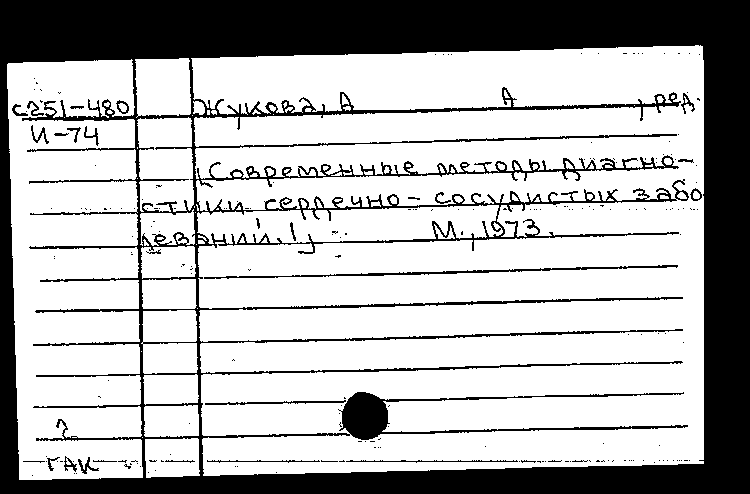 с251-480 Жукова, А А , ред.
И-74
[Современные методы диагно-
стики сердечно-сосудистых забо
леваний.!]   М., 1973.
2
ГАК